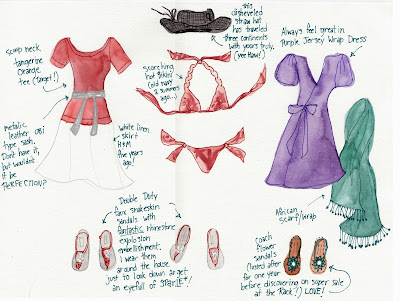 this
disheveled
straw hat
has traveled
three continents
with yours truly.
(yee Haw!)
Always feel great in
Purple Jersey Wrap Dress
Scoop neck
tangerine
Orange
tee (Target!)
Scorching
hot Bikini
(old navy
2 summers
ago...)
metallic
leather obi
type sash.
Don't have it,
but wouldn't
it be
PERFECTION?
white linen
skirt
H&M
five years
ago!
African
scarf/wrap
Double Duty
faux snakeskin
sandals with
fantastic rhinestone
explosion
embellishment.
I wear them
around the house
just to look down & get
an eyefull of
coach
flower
sandals
(lusted after
for one year
before discovering on super sale
at the Rack!) LOVE!